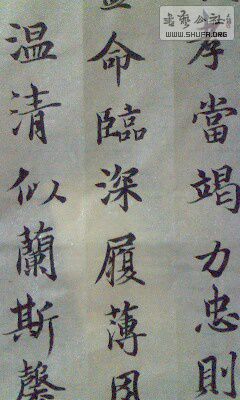 孝當竭力忠則
命臨深履薄夙
温清似蘭斯馨
書藝公社
WWW.SHUFA.ORG